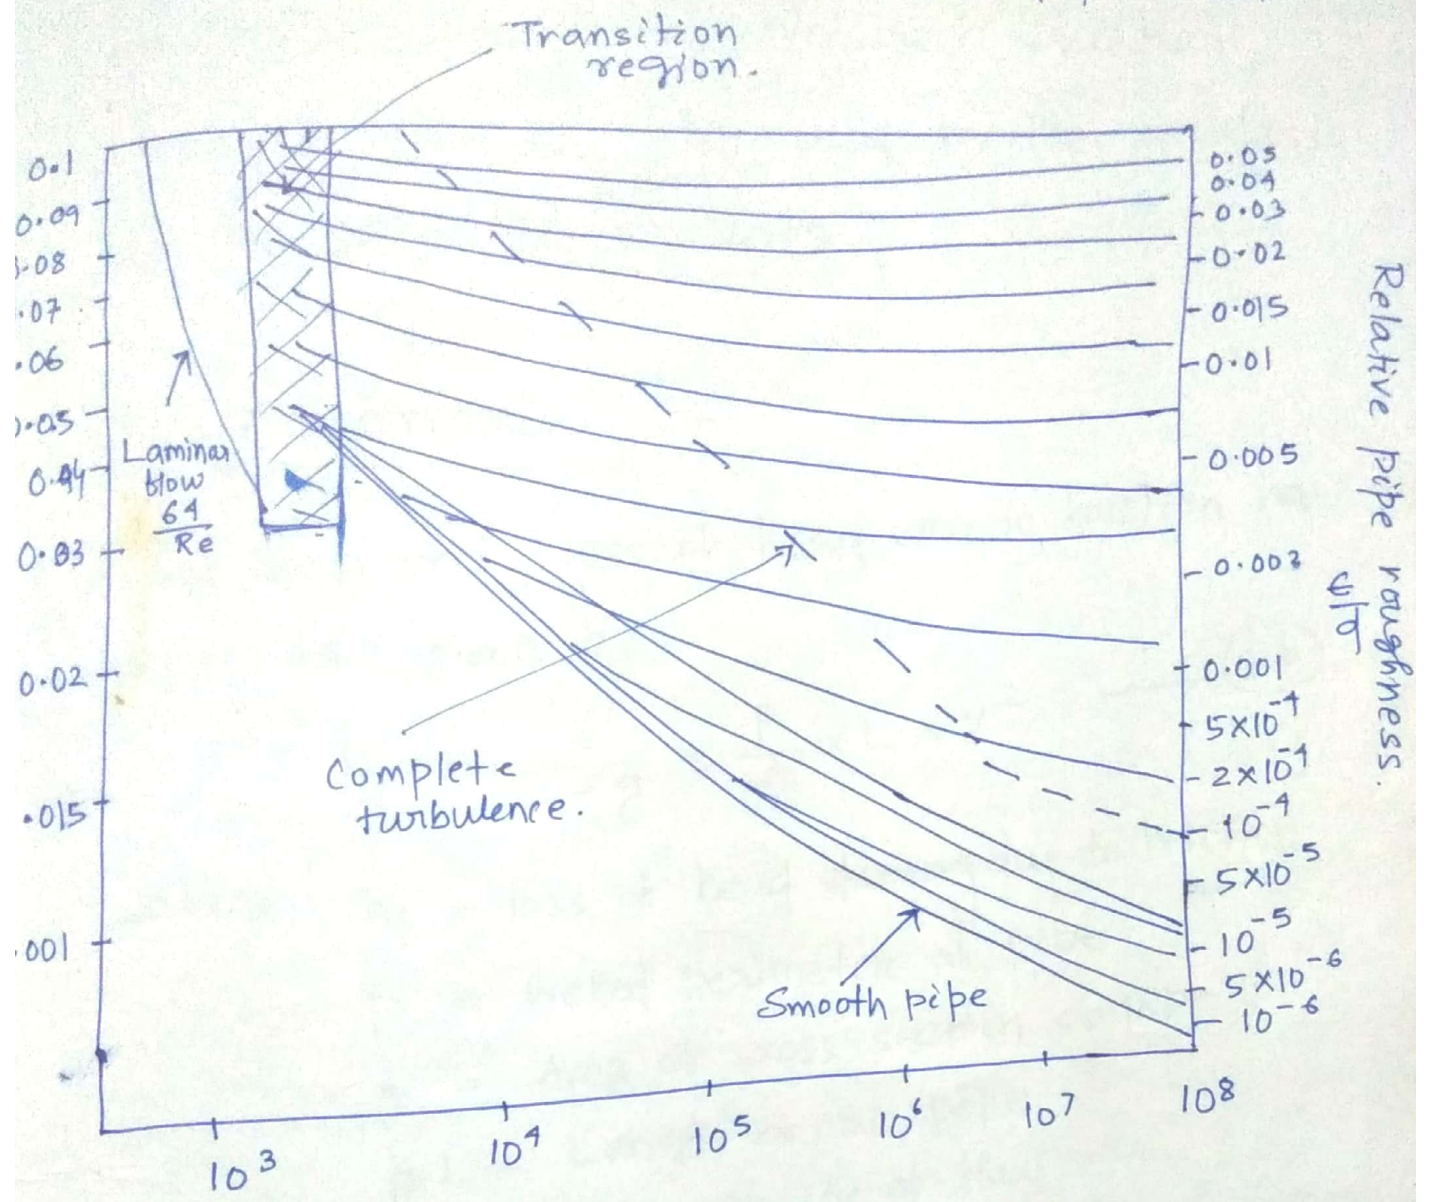 Transition
region.
0.1
0.09
.08
.07
.06
0.05
0.04
0.03
0.02
.015
.001
Laminar
flow
64
Re
Complete
turbulence.
Smooth pipe
10³
10⁴
10⁵
10⁶
10⁷
10⁸
0.05
0.04
0.03
0.02
0.015
0.01
0.005
0.002
0.001
5×10⁻⁴
2×10⁻⁴
10⁻⁴
5×10⁻⁵
10⁻⁵
5×10⁻⁶
10⁻⁶
Relative pipe roughness.
ε/D